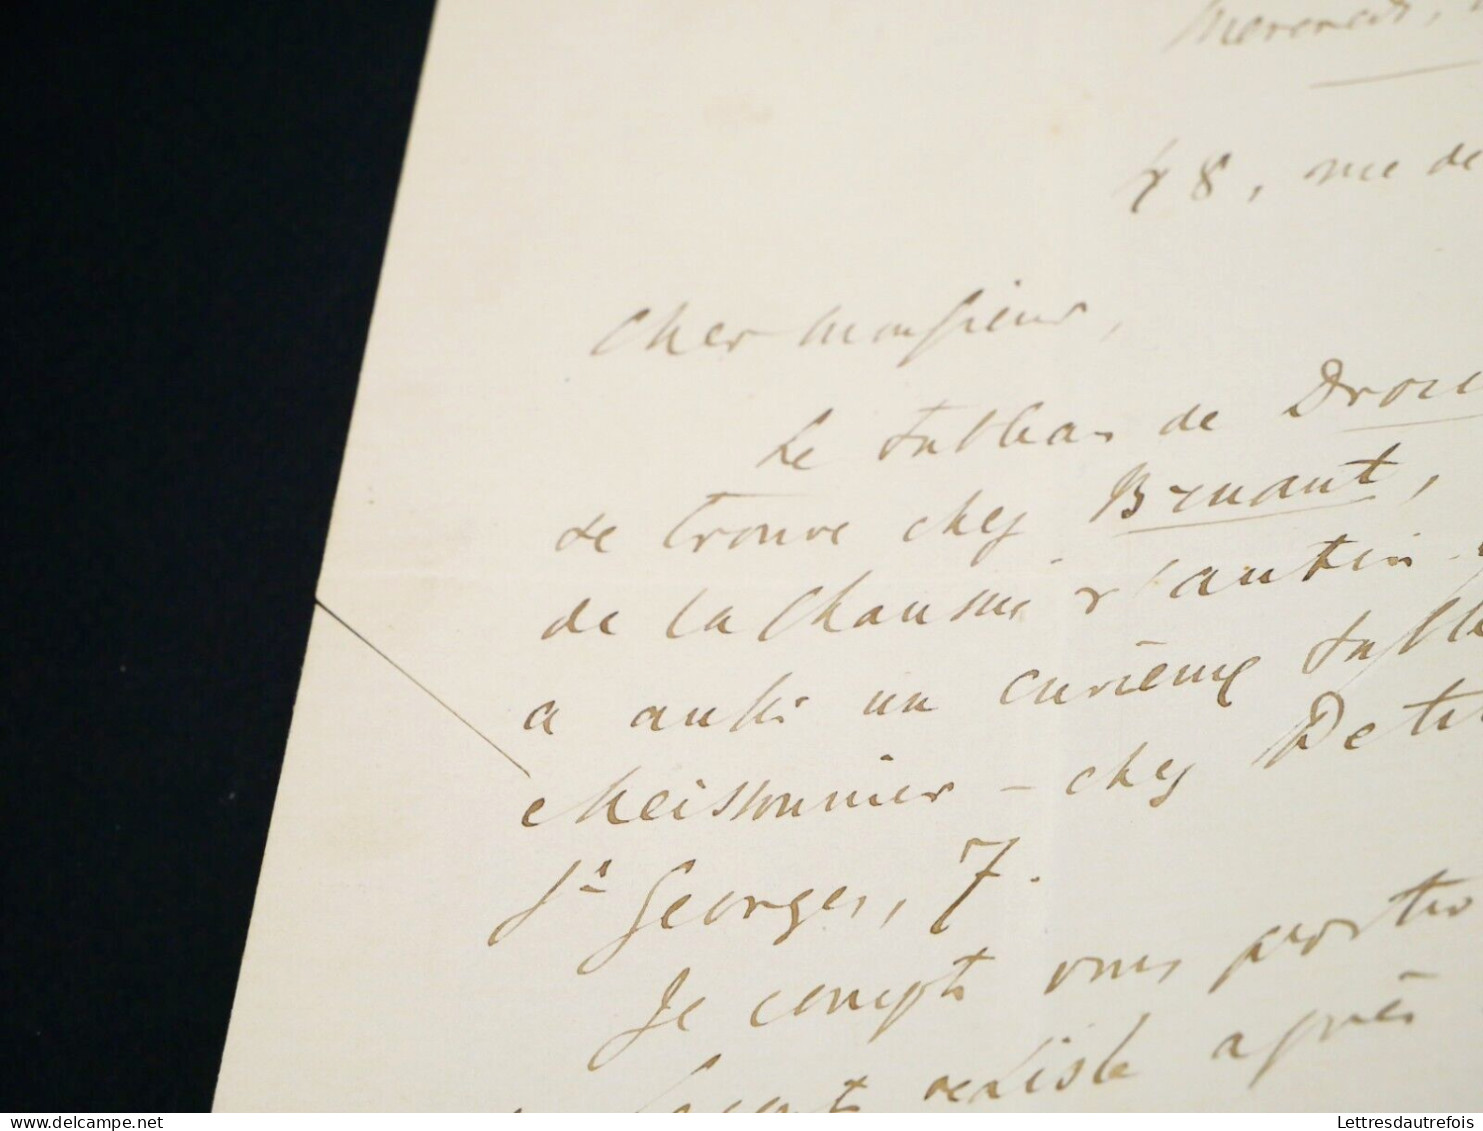 Mercredi,
48, rue de
Cher Monsieur,
Le tableau de
se trouve chez Bruant,
de la Chaussée d'antin
a aussi un curieux
Meissonnier – chez
St Georges, 7.
Je compte vous
après
Lettresdautrefois